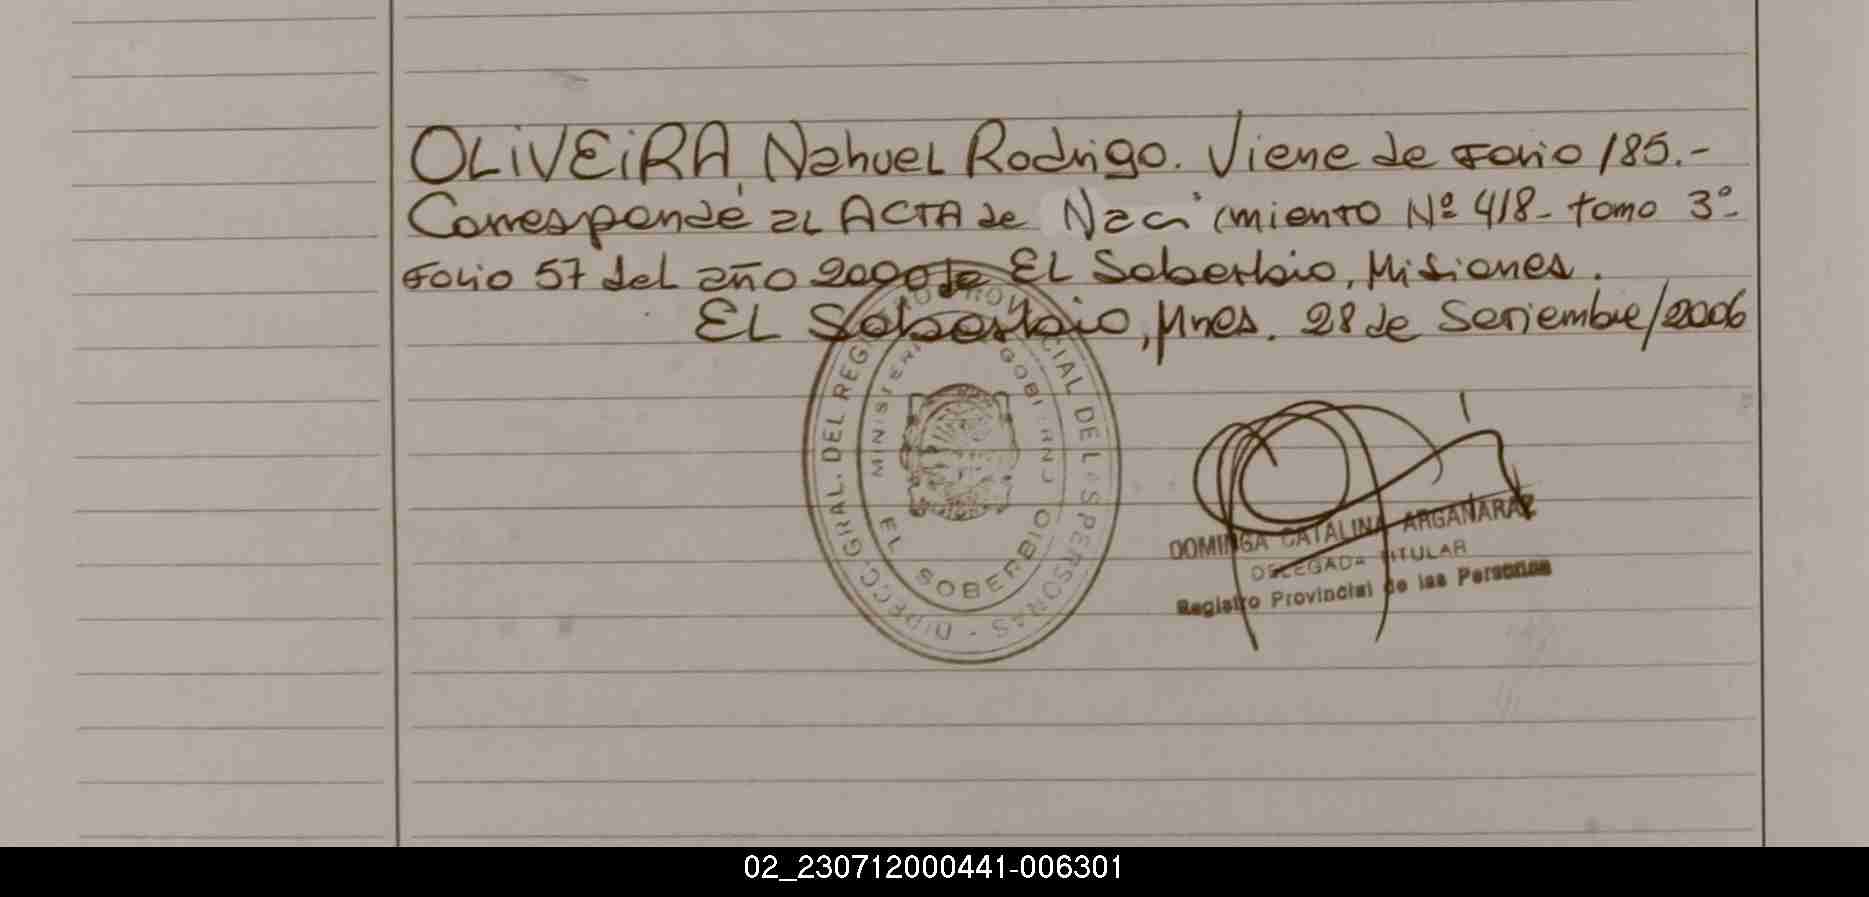 OLIVEIRA, Nahuel Rodrigo. Viene de Folio 185.-
Corresponde al ACTA de Nacimiento Nº 418- tomo 3º-
Folio 57 del año 2000 de EL Soberbio, Misiones.
EL Soberbio, Mnes. 28 de Setiembre/2006
DIRECC. GRAL. DEL REGISTRO PROVINCIAL DE LAS PERSONAS
MINISTERIO GOBIERNO
EL SOBERBIO
DOMINGA CATALINA ARGAÑARAZ
DELEGADA TITULAR
Registro Provincial de las Personas
02_230712000441-006301